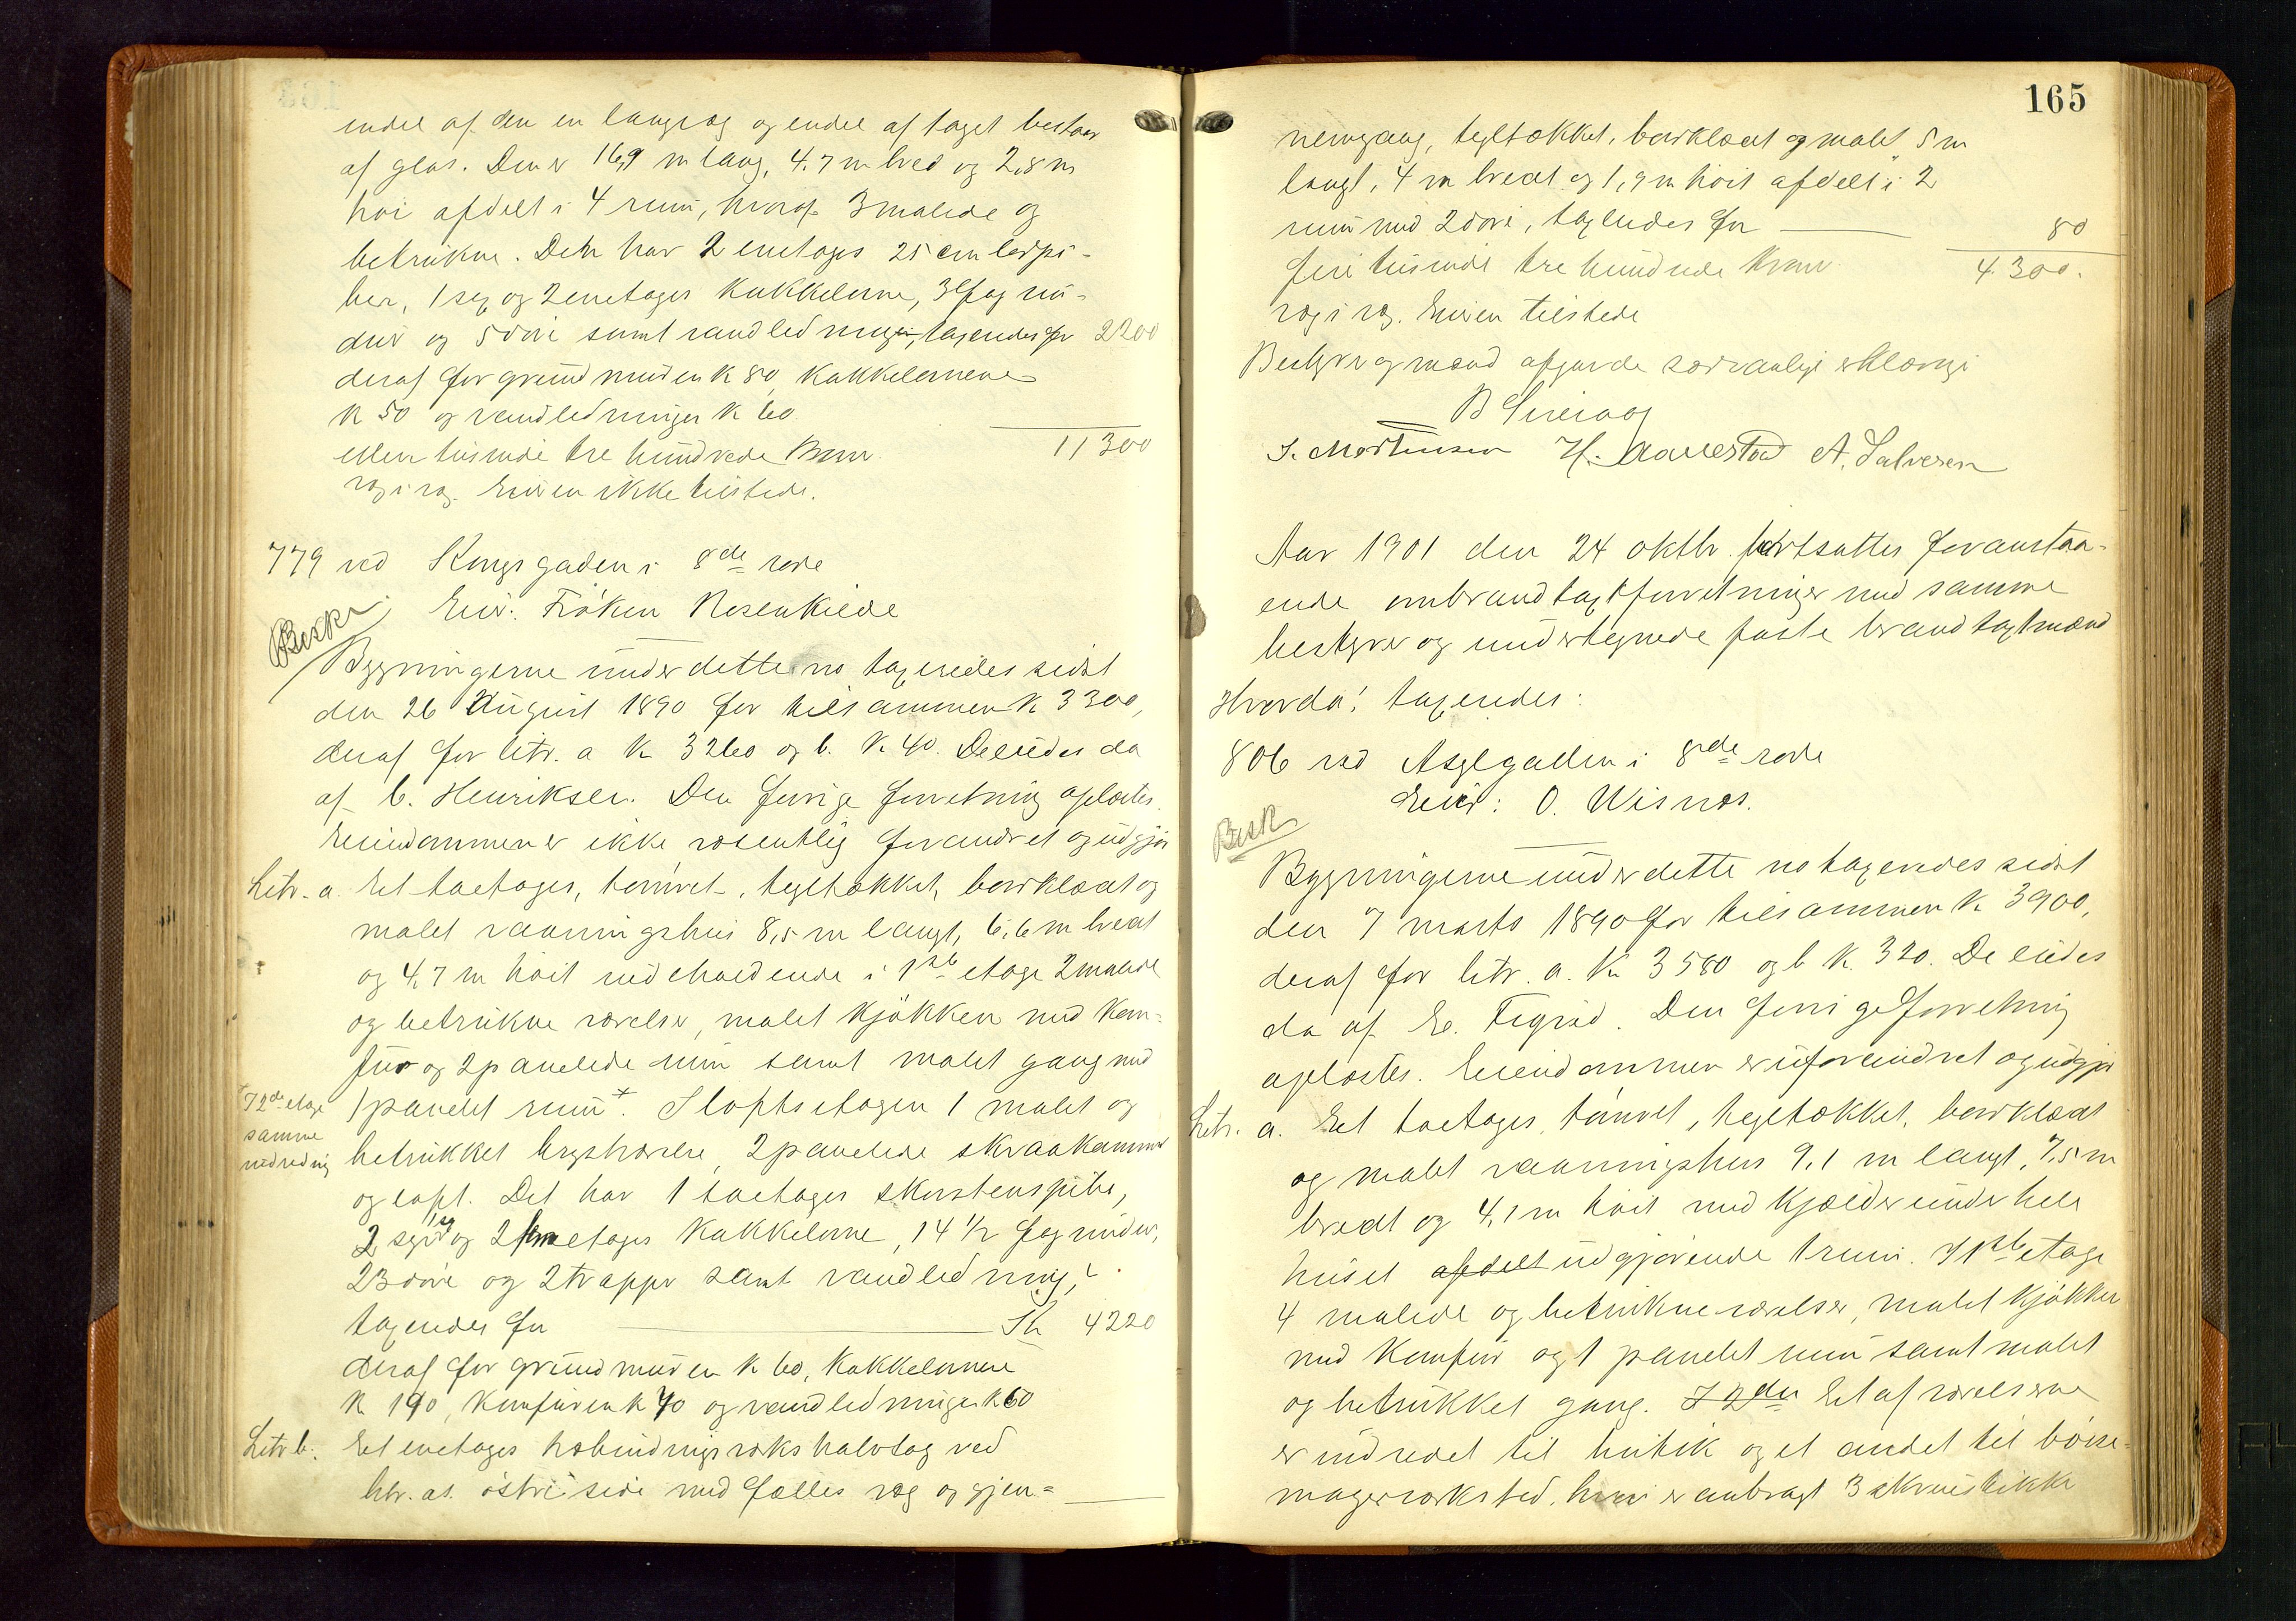 endel af den en langvæg og endel af taget bestaar
af glas. Den er 16,9 m lang, 4.7 m bred og 2,8 m
høi afdelt i 4 rum, hvoraf 3 malede og
betrukne. Den har 2 enetages 25 cm
ber, 1 seg og 2 enetages kakkelovne, 3 fag vin-
duer og 5 døre samt vandledning, taxeredes for 2200
deraf for grundmuren k 80, kakkelovnene
k 50 og vandledningen k 60
elleve tusinde tre hundrede kroner. 11300
væg i væg. Eieren ikke tilstede.
779 ved Kongsgaden i 8de rode
Eier: Frøken Rosenkilde
Beskr.
Bygningerne under dette no taxeredes sidst
den 26 August 1890 for tilsammen k 3300,
deraf for litr. a k 3260 og b. k 40. De eiedes da
af C. Henriksen. Den forrige forretning oplæstes.
Eiendommen er ikke væsentlig forandret og udgjør
Litr. a. Et toetages, tømret, tegltækket, bordklædt og
malet vaaningshus 8,5 m langt, 6,6 m bredt
og 4,7 m høit indeholdende i 1ste etage 2 malede
og betrukne værelser, malet kjøkken med kom-
fur og 2 panelede rum samt malet gang med
+ I 2den etage
samme
indredning
1 panelet rum +. I loftsetagen 1 malet og
betrukket kvistværelse, 2 panelede skraakammer
og loft. Det har 1 toetages skorstenspibe,
2 seg og 2 etages kakkelovne, 14 ½ fag vinduer,
23 døre og 2 trapper samt vandledning,
taxeredes for 4220
deraf for grundmuren k 60, kakkelovnene
k 190, komfuren k 70 og vandledningen k 60
Litr b. Et enetages halvtag ved
litr. as østre side med fælles væg og gjen-
165
nemgang, tegltækket, bordklædt og malet 5 m
langt, 4 m bredt og 1,9 m høit afdelt i 2
rum med 2 døre, taxeredes for 80
fire tusinde tre hundrede kroner. 4300.
væg i væg. Eieren tilstede
Bestyrer og mænd afgav de sædvanlige erklæringer
S. Mortensen H. Aarrestad A. Salvesen
Aar 1901 den 24 oktbr. fortsattes foranstaa-
ende ombrandtaxtforretninger med samme
bestyrer og undertegnede faste brandtaxtmænd
Hvorda! taxeredes:
806 ved Asylgaden i 8de rode
Eier: O. Wisnæs.
Beskr
Bygningerne under dette no taxeredes sidst
den 7 marts 1890 for tilsammen k. 3900,
deraf for litr. a. k 3580 og b k. 320. De eiedes
da af E. Tegrød. Den forrige forretning
oplæstes. Eiendommen er uforandret og udgjør
Litr. a. Et toetages, tømret, tegltækket, bordklædt
og malet vaaningshus 9,1 m langt, 7,5 m
bredt og 4,1 m høit med kjælder under hele
huset afdelt udgjørende 1 rum. I 1ste etage
4 malede og betrukne værelser, malet kjøkken
med komfur og 1 panelet rum samt malet
og betrukket gang. I 2den Et af værelserne
er indredet til butik og et andet til børse-
magerværksted, hvori er anbragt 3 skruestikke